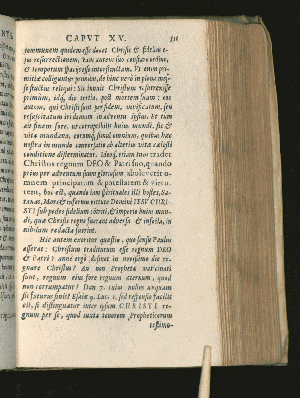 CAPVT XV. 511
communem quidem esse docet Christi & fidelium
ejus resurrectionem, sam autem suo constare ordine,
& temporum spacijs esse intersinctam. Vt enim pri-
mitiæ colliguntur primùm, de hinc verò in plena mes-
se fructus reliqui: Sic inquit Christum resurrexisse
primùm, idq́, die tertio, post mortem suam: eos
autem, qui Christi sunt per fidem, vivificatum, seu
resuscitatum iri demum in adventu ipsius. Et tum
fore finem, ut corruptibilis hujus mundi, sic &
vitæ mundanæ, eorumq́, simul omnium, quibus hæc
nostra in mundo conversatio ab alterius vitæ cælestis
conditione disterminatur. Ideoq́, etiam tunc tradet
Christus regnum DEO & Patri suo, quando
prius per adventum suum gloriosum aboleverit o-
mnem principatum & potestatem & virtu-
tem, hoc est, quando jam spirituales illi hostes, Sa-
tanas, Mors & infernus virtute Domini IESV CHRI-
STI sub pedes fidelium cōtriti, & imperia hujus mun-
di, quæ Christi regno fuerant adversa & infesta, in
nihilum redacta fuerint.
Hîc autem exoritur quæstio, quo sensu Paulus
asserat: Christum traditurum esse regnum DEO
& Patri? anne ergò desinet in novissimo die re-
gnare Christus? An non Prophetæ vaticinati
sunt, regnum ejus fore regnum æternum, quod
non corrumpatur? Dan 7. cuius nullus unquam
sit futurus finis? Esaiæ 9. Luc. 1. sed responsio facilis
est, si distinguatur inter ipsum CHRISTI re-
gnum per se, quod juxta tenorem Propheticorum
testimo-